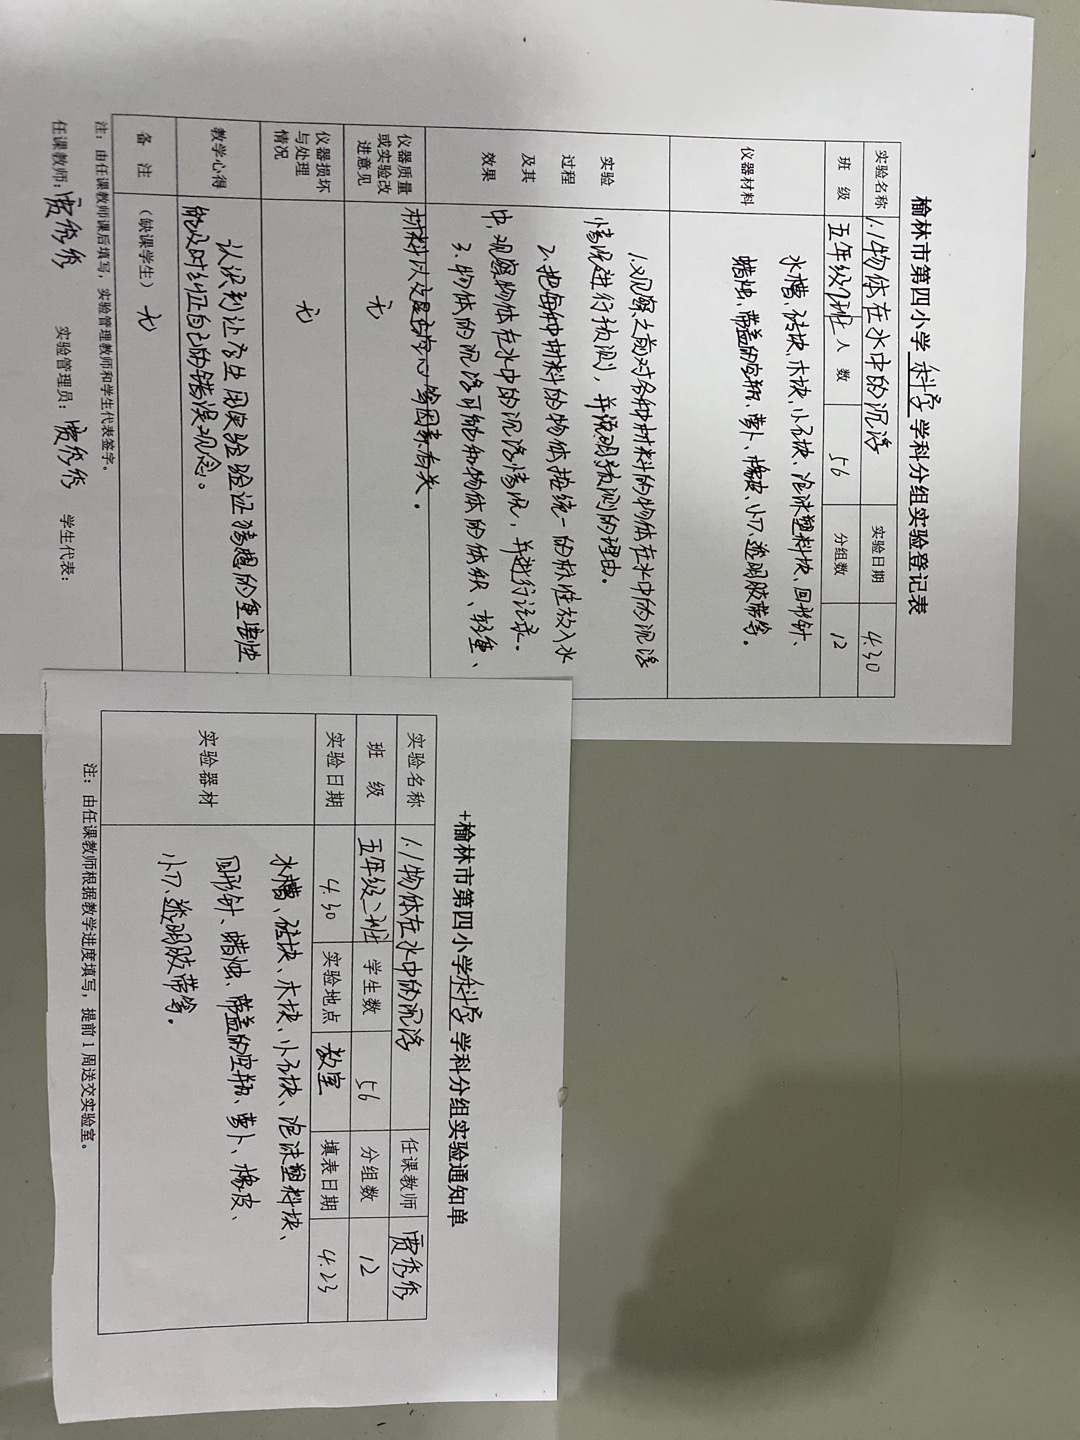 榆林市第四小学科学学科分组实验登记表
实验名称 1.1物体在水中的沉浮 实验日期 4.30
班 级 五年级2班 人 数 56 分组数 12
仪器材料 水槽、砖块、木块、小石块、泡沫塑料块、回形针、
蜡烛、带盖的空瓶、萝卜、橡皮、小刀、透明胶带等。
实验
过程
及其
效果
1.观察之前对各种材料的物体在水中的沉浮
情况进行预测，并说明预测的理由。
2.把每种材料的物体按统一的标准放入水
中，观察物体在水中的沉浮情况，并进行记录。
3.物体的沉浮可能和物体的体积、轻重、
材料以及是否空心等因素有关。
仪器质量
或实验改
进意见
无
仪器损坏
与处理
情况
无
教学心得 认识到让学生用实验验证猜想的重要性
能及时纠正自己的错误观念。
备 注 （缺课学生） 无
注：由任课教师课后填写，实验管理教师和学生代表签字。
任课教师：贾彩彩 实验管理员：贾彩彩 学生代表：
+榆林市第四小学科学学科分组实验通知单
实验名称 1.1物体在水中的沉浮 任课教师 贾彩彩
班 级 五年级二班 学生数 56 分组数 12
实验日期 4.30 实验地点 教室 填表日期 4.23
实验器材 水槽、砖块、木块、小石块、泡沫塑料块、
回形针、蜡烛、带盖的空瓶、萝卜、橡皮、
小刀、透明胶带等。
注：由任课教师根据教学进度填写，提前1周送交实验室。